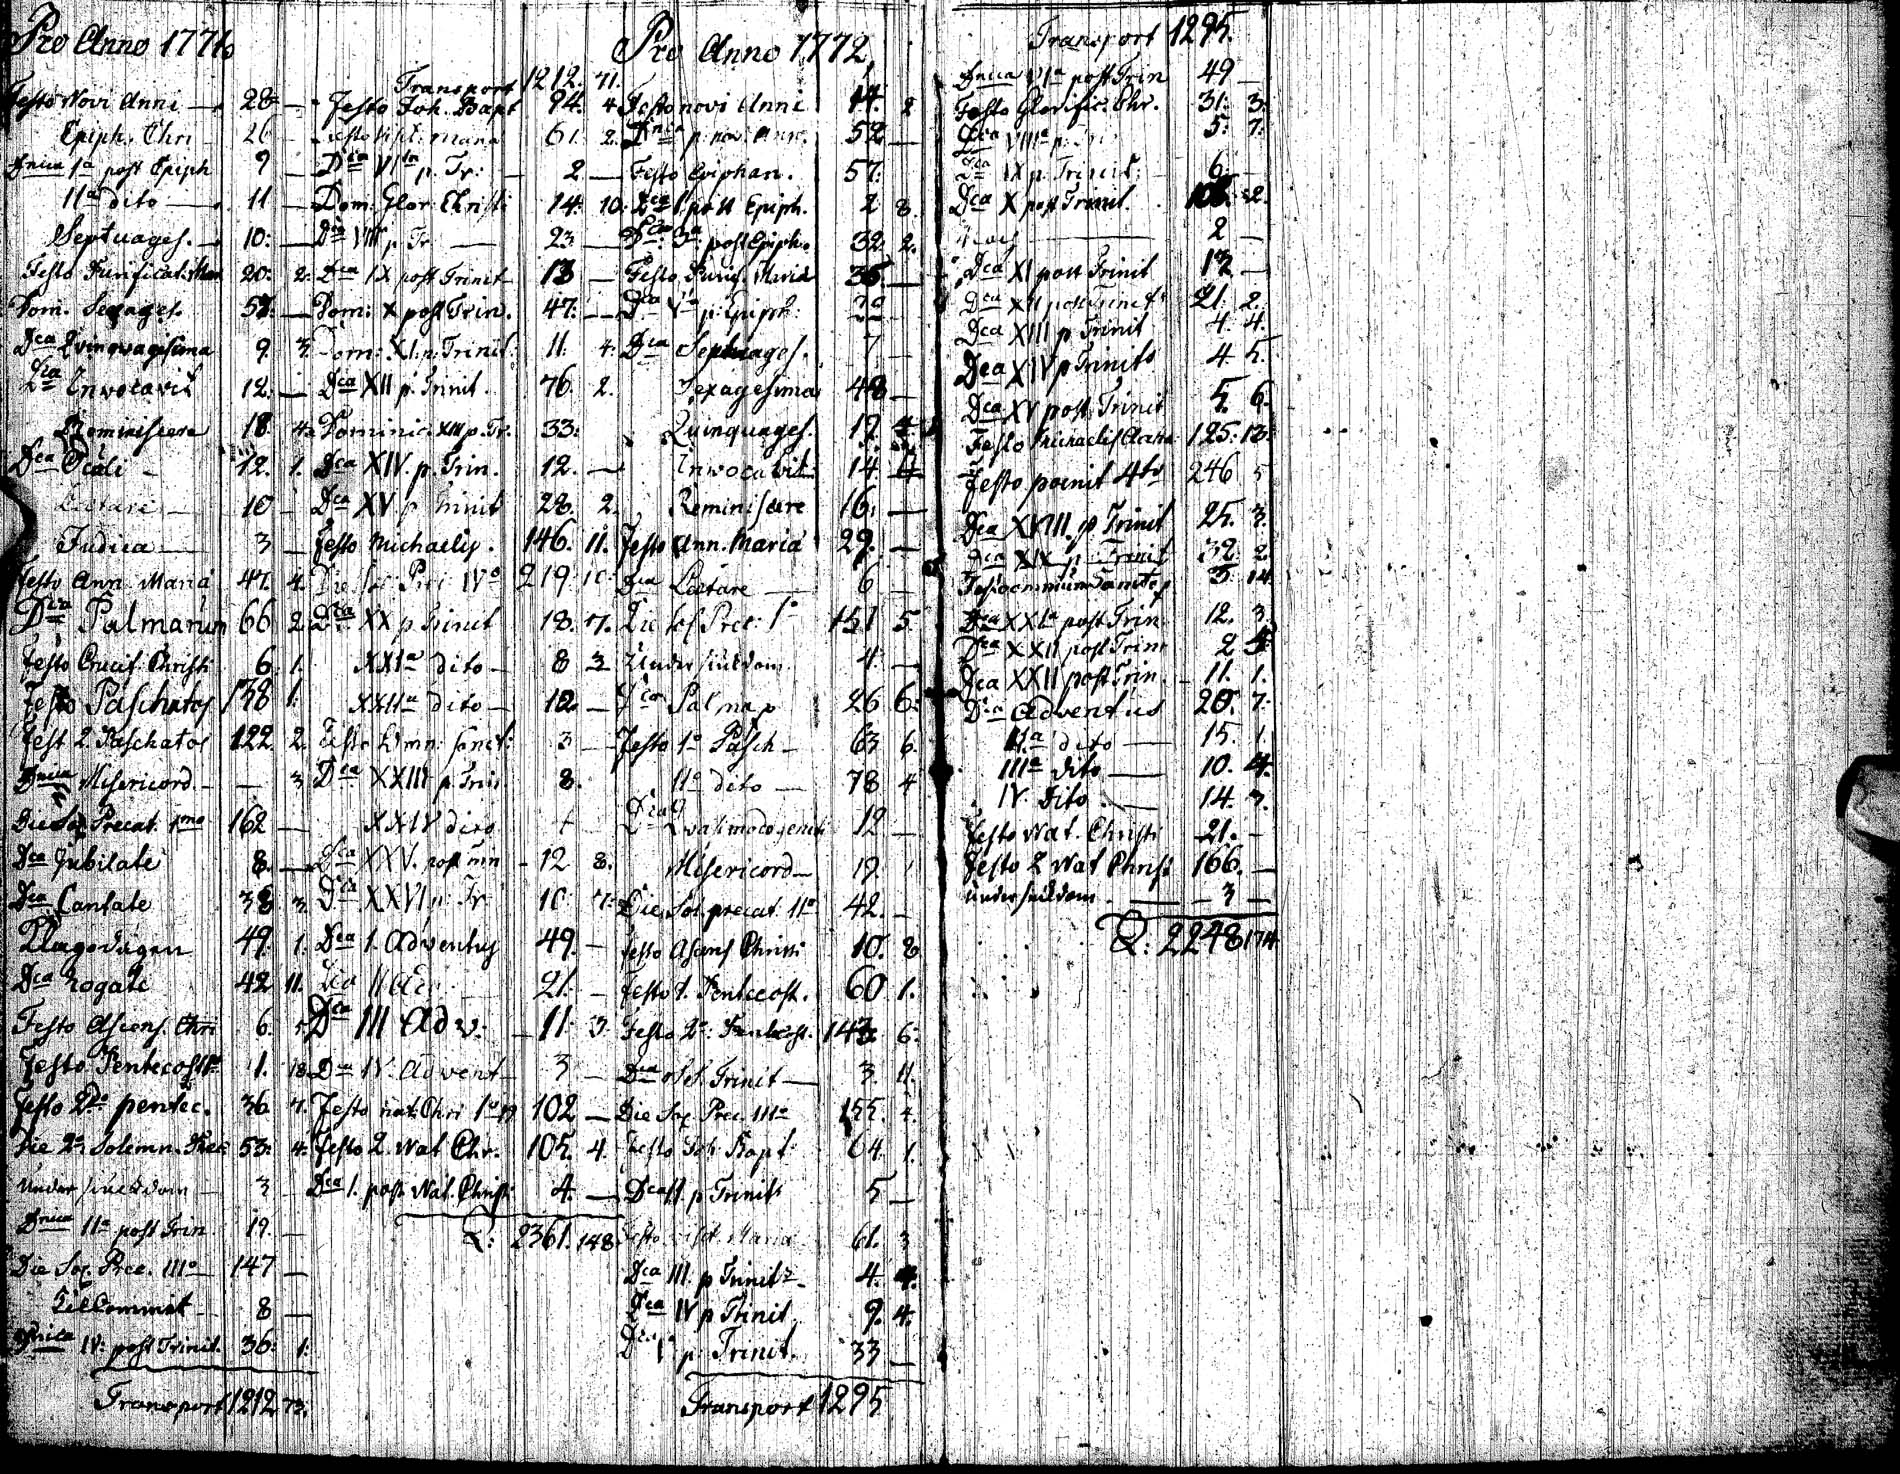 Pro Anno 1771
Festo Novi Anni 28 —
Epiph. Chri 26 —
Dnica 1a post Epiph 9 —
11a dito — 11 —
Septuages. — 10: —
Festo Purificat: Mar 20: 2:
Dom. Sexages. 57: —
Dca Qvinqvagesima 9 3
Dca Invocavit 12: —
Reminiscere 18. 4
Dca Oculi — 12. 1.
Lætare — 10 —
Judica — 3 —
Festo Ann. Mariä 47. 4.
Dca Palmarum 66 2
Festo Crucif. Christi 6. 1.
Festo Paschatos 138 1.
Fest 2. Paschatos 122 2
Dnica Misericord. — — 3
Die Sol. Precat. 1mo 162 —
Dca Jubilate 8. —
Dca Cantate 38 3
49. 1.
Dca Rogate 42 11.
Festo Ascens. Chri 6. 5
Festo Pentecost 1. 18
Festo 2do pentec. 36 7.
Die 2a Solemn. Prec 53: 4:
3 —
Dnica 11a post Trin 19. —
Die Sol. Prec. 111a 147 —
8 —
Dnica IV: post Trinit. 36: 1:
Transport 1212 73.
Transport 1212. 71.
Festo Joh. Bapt 94. 4
Festo Visit: Maria 61. 2.
Dca VIta p. Tr: — 2 —
Dom. Glor. Christi 14: 10:
Dca VIII p Tr — 23 —
Dca IX post Trinit 13 —
Dom: X post Trin. 47: —
Dom: XI. p. Trinit: 11. 4:
Dca XII p. Trinit. 76. 2.
Dominic. XIII p. Tr. 33:
Dca XIV. p. Trin. 12. —
Dca XV p Trinit 28. 2.
Festo Michaelis. 146. 11.
Die Sol. Prec: IVo 219 10:
Dca XX p Trinit 18. 7.
XXIa dito — 8 3
XXIIa dito — 12. —
Festo Omn: sanct: 3 —
Dca XXIII p. Trin. 8.
XXIV dito
Dca XXV. post Trin — 12 8.
Dca XXVI p: Tr 10 7:
Dca 1. Adventus 49. —
Dca II Adv 21. —
Dca III Adv. — 11: 3
Dca IV. Advent 3 —
Festo nat: Chri 1o 102 —
Festo 2. Nat Chr. 105. 4.
Dca 1. post Nat. Christi 4. —
S: 2361. 148
Pro Anno 1772,
Festo novi Anni 14: 2
Dnica p: novi Anni. 52 —
Festo Epiphan. 57:
Dca 1. post Epiph. 2 8.
Dca 3a post Epiph. 32: 2.
Festo Purif. Mariä 36. —
Dca Va p: Epiph:
Dca Septuages. 7 —
Sexagesima 48 —
Quinquages. 19
Invocavit 14
Reminiscere 16. —
Festo Ann. Mariä 29. —
Dca Lætare — 6 —
Die Sol Prec: 1o 151 5
4. —
Dca Palmar 26 6:
Festo 1a Pasch — 63 6.
11a dito — 78 4
Dca Qvasimodogeniti 12 —
Misericord — 19. 1
Die Sol. precat. 11a 42. —
Festo Ascens Christi 10. 2
Festo 1. Pentecost. 60. 1.
Festo 2a: Pentecost. 143: 6:
Dca Trinit — 3. 11.
Die Sol. Prec. 111a 155. 4.
Festo Joh: Bapt: 64. 1.
Dca II p Trinit 5 —
Festo visit. Maria 61. 3
Dca III. p Trinit — 4.
Dca IV p Trinit 9. 4.
Dca V p Trinit. 33 —
Transport 1295
Transport 1295.
Dnica VIa post Trin 49 —
Festo Glorific. Chr. 31: 3.
Dca VIIIa p: 5: 7:
Dca IX p: Trinit: 6: —
Dca X post Trinit. 2.
2 —
Dca XI post Trinit 12 —
Dca XII post Trinit 21. 2.
Dca XIII p Trinit 4. 4.
Dca XIV p Trinit 4 5.
Dca XV post Trinit 5. 6.
Festo Michaelis 125: 13:
Festo poenit 4to 246 5
Dca XVIII. p Trinit 25. 3.
Dca XIX p: Trinit 32. 2.
Festo omnium Sanct 3: 14
Dca XXIa post Trin. 12. 3
Dca XXII post Trin 2
Dca XXII post Trin. — 11. 1.
Dca Adventus 20. 7:
IIa dito — 15. 1.
IIIa dito — 10. 4.
IV. dito — 14. 3.
Festo Nat. Christi 21. —
Festo 2 Nat Christ 166. —
— 3 —
S: 2248 174